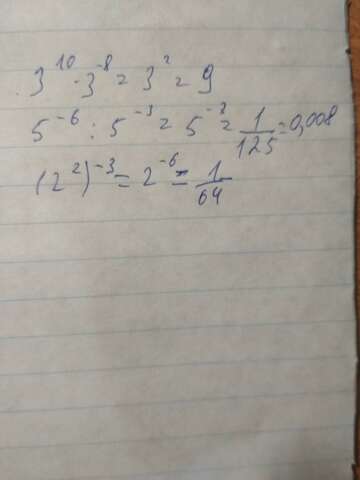 3^10 · 3^-8 = 3^2 = 9
5^-6 : 5^-3 = 5^-3 = 1/125 = 0,008
(2^2)^-3 = 2^-6 = 1/64